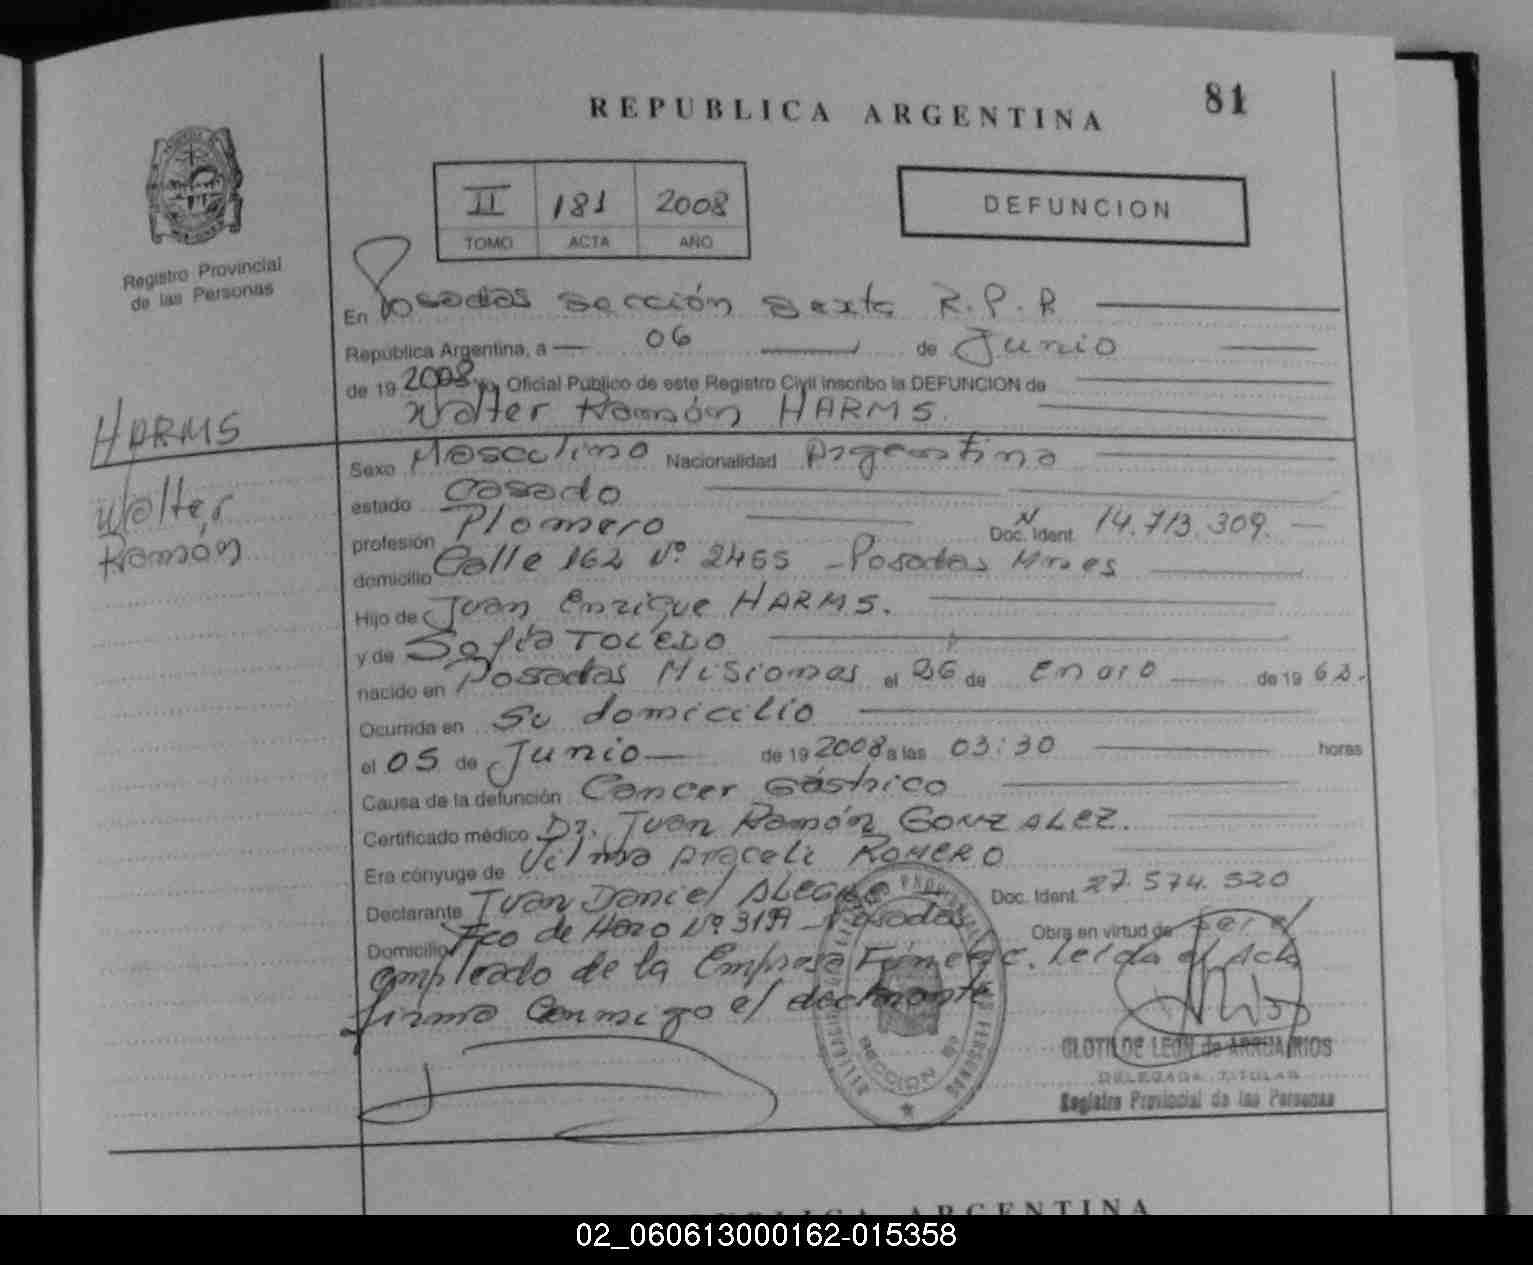 REPUBLICA ARGENTINA
81
II 181 2008
TOMO ACTA AÑO
DEFUNCION
Registro Provincial
de las Personas
En Posadas sección sexta R.P.R
República Argentina, a 06 de Junio
de 19 2008 yo, Oficial Público de este Registro Civil inscribo la DEFUNCION de
Walter Ramón HARMS.
HARMS
Walter
Ramón
Sexo Masculino Nacionalidad Argentina
estado Casado
profesión Plomero Doc. Ident. N 14.713.309.
domicilio Calle 162 Nº 2465 - Posadas Mnes
Hijo de Juan Enrique HARMS.
y de Sofía TOLEDO
nacido en Posadas Misiones el 26 de Enero de 19 62.
Ocurrida en Su domicilio
el 05 de Junio de 19 2008 a las 03:30 horas
Causa de la defunción Cancer Gástrico
Certificado médico Dr. Juan Ramón GONZALEZ.
Era cónyuge de Vilma Araceli ROMERO
Declarante Juan Daniel ALEGRE Doc. Ident. 27.574.520
Domicilio Fco de Haro Nº 3199 - Posadas Obra en virtud de ser el
empleado de la Empresa Leída el Acta
firma Conmigo el declarante
SECCION 6ª
CLOTILDE LEON de ARRUA RIOS
DELEGADA TITULAR
Registro Provincial de las Personas
REPUBLICA ARGENTINA
02_060613000162-015358